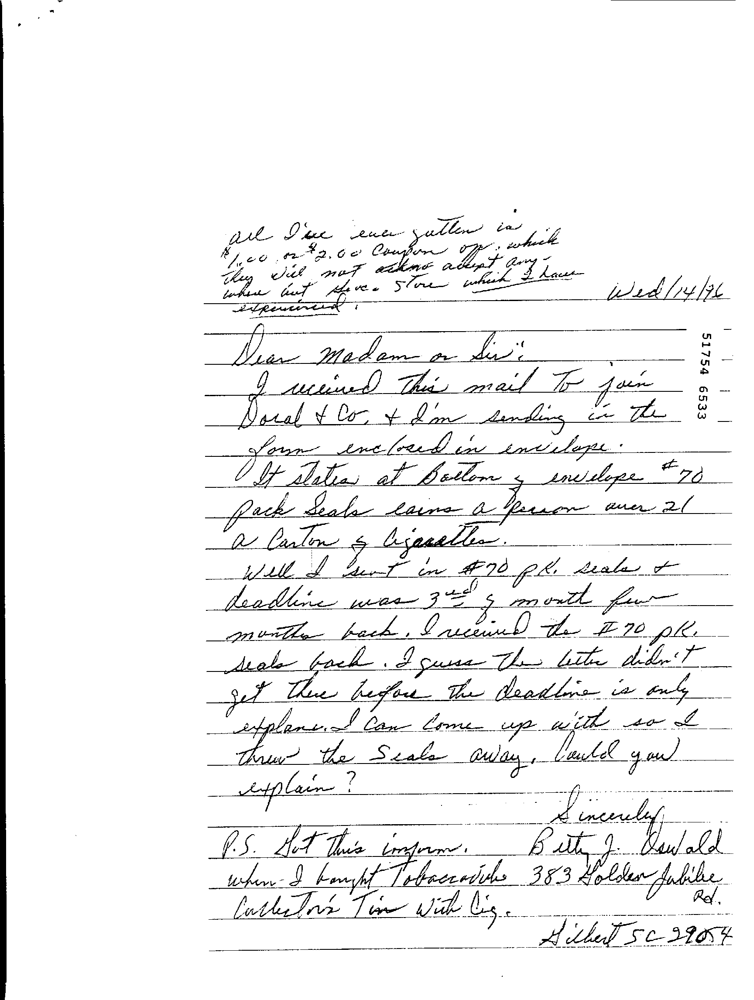 all I've ever gotten is
$1.00 or $2.00 Coupon off. which
they will not accept any-
where but store which I have
experienced.
Wed/14/96
Dear Madam or Sir":
I received this mail To join
Doral & Co. & I'm sending in the
form enclosed in envelope.
It states at Bottom of envelope #70
pack Seals earns a person over 21
a Carton of Cigarettes.
Well I sent in #70 pk. seals &
deadline was 3rd of month few
months back. I received the #70 pk.
seals back. I guess the letter didn't
get there before the deadline is only
explane. I can come up with so I
threw the Seals away. Could you
explain?
Sincerely,
P.S. Got this inform.
Betty J. Oswald
when I bought Tobaccoville
383 Golden Jubilee
Rd.
Collector's Tin With Cig.
Gilbert SC 29054
51754 6533